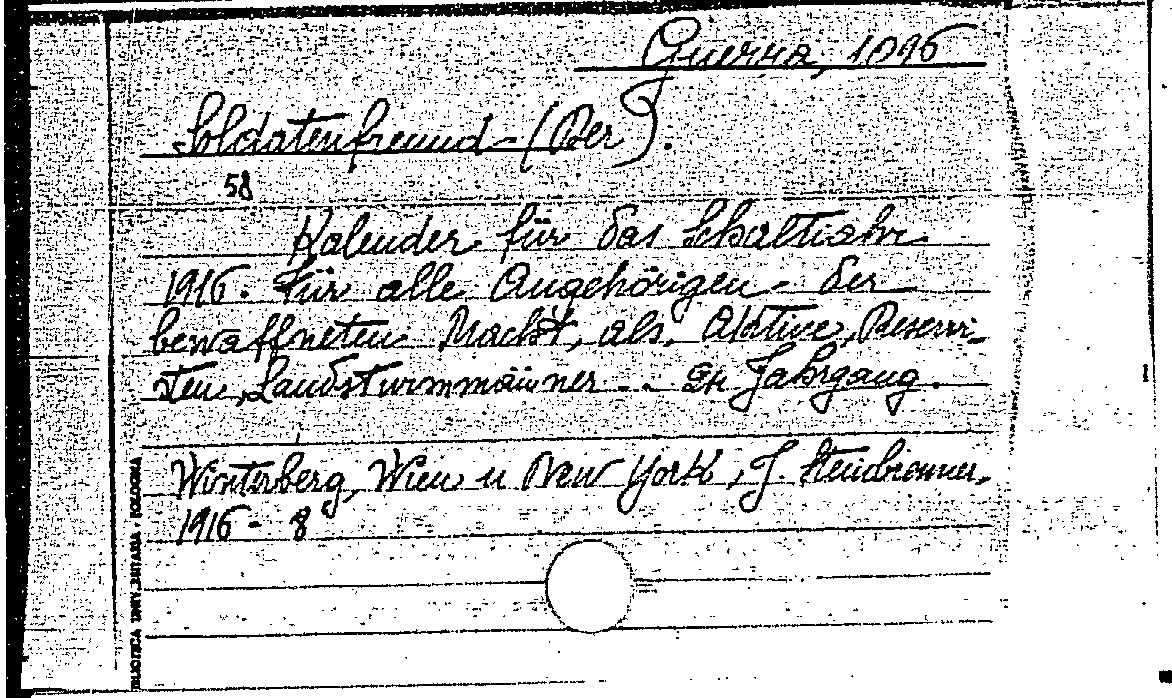 Guerra, 1096
Soldatenfreund - (Der).
58
Kalender für das Schaltjahr
1916. Für alle Angehörigen der
bewaffneten Macht, als Aktive, Reservi-
sten, Landsturmmänner .. Jahrgang.
Winterberg, Wien u New York, J. Steinbrenner,
1916 - 8
BIBLIOTECA UNIVERSITARIA - BOLOGNA